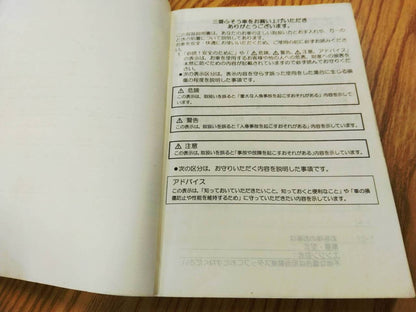 三菱ふそう車をお買い上げいただき
ありがとうございます。
この取扱説明書は、あなたのお車の正しい取扱い方とお手入れ方、万一の
ときの処置について説明してあります。
お車を安全・快適にお使いいただくため、ご使用の前に必ずお読みくださ
い。
●次の表示区分は、表示内容を守らず誤った使用をした場合に生じる損害
の程度を説明した事項です。
⚠ 危険
この表示は、取扱いを誤ると「重大な人身事故を起こすおそれがある」内容を示しています。
⚠ 警告
この表示は、取扱いを誤ると「人身事故を起こすおそれがある」内容を示しています。
⚠ 注意
この表示は、取扱いを誤ると「事故や故障を起こすおそれがある」内容を示しています。
●次の区分は、お守りいただく内容を説明した事項です。
アドバイス
この表示は、「知っておいていただきたいこと、知っておくと便利なこと」や「車の損
傷防止や性能を維持するため」に守っていただきたい内容を示しています。